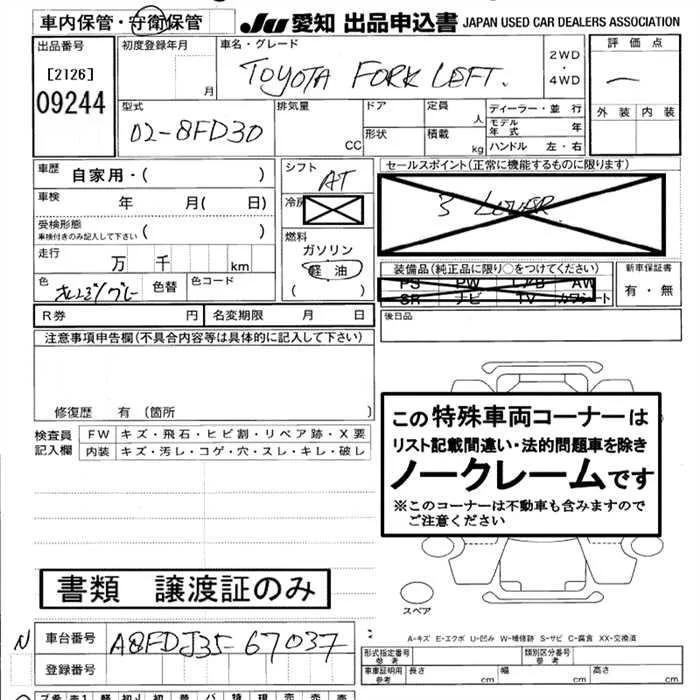 車内保管・守衛保管
JU 愛知 出品申込書 JAPAN USED CAR DEALERS ASSOCIATION
出品番号
[2126]
09244
初度登録年月
月
車名・グレード
TOYOTA FORK LEFT.
2WD
・
4WD
評価点
外装 内装
型式
02-8FD30
排気量
CC
ドア
形状
定員
人
積載
kg
ディーラー・並 行
モデル年式 年
ハンドル 左・右
車歴 自家用・( )
車検 年 月( 日)
受検形態
車検付きのみ記入して下さい ( )
走行 万 千 km
色
色替
色コード
シフト
AT
冷房
燃料
ガソリン
軽油
( )
R券 円 名変期限 月 日
セールスポイント(正常に機能するものに限ります)
3 LEVER
装備品(純正品に限り○をつけてください)
PS PW エアB AW
SR ナビ TV カワシート
新車保証書
有・無
後日品
注意事項申告欄(不具合内容等は具体的に記入して下さい)
修復歴 有 (箇所 )
検査員
記入欄
FW キズ・飛石・ヒビ割・リペア跡・X要
内装 キズ・汚レ・コゲ・穴・スレ・キレ・破レ
この特殊車両コーナーは
リスト記載間違い・法的問題車を除き
ノークレームです
※このコーナーは不動車も含みますので
ご注意ください
書類 譲渡証のみ
スペア
A-キズ E-エクボ U-凹み W-補修跡 S-サビ C-腐食 XX-交換済
N
車台番号 A8FDJ35-67037
登録番号
形式指定番号
参考
類別区分番号
参考
車庫証明用
参考
長さ cm 幅 cm 高さ cm